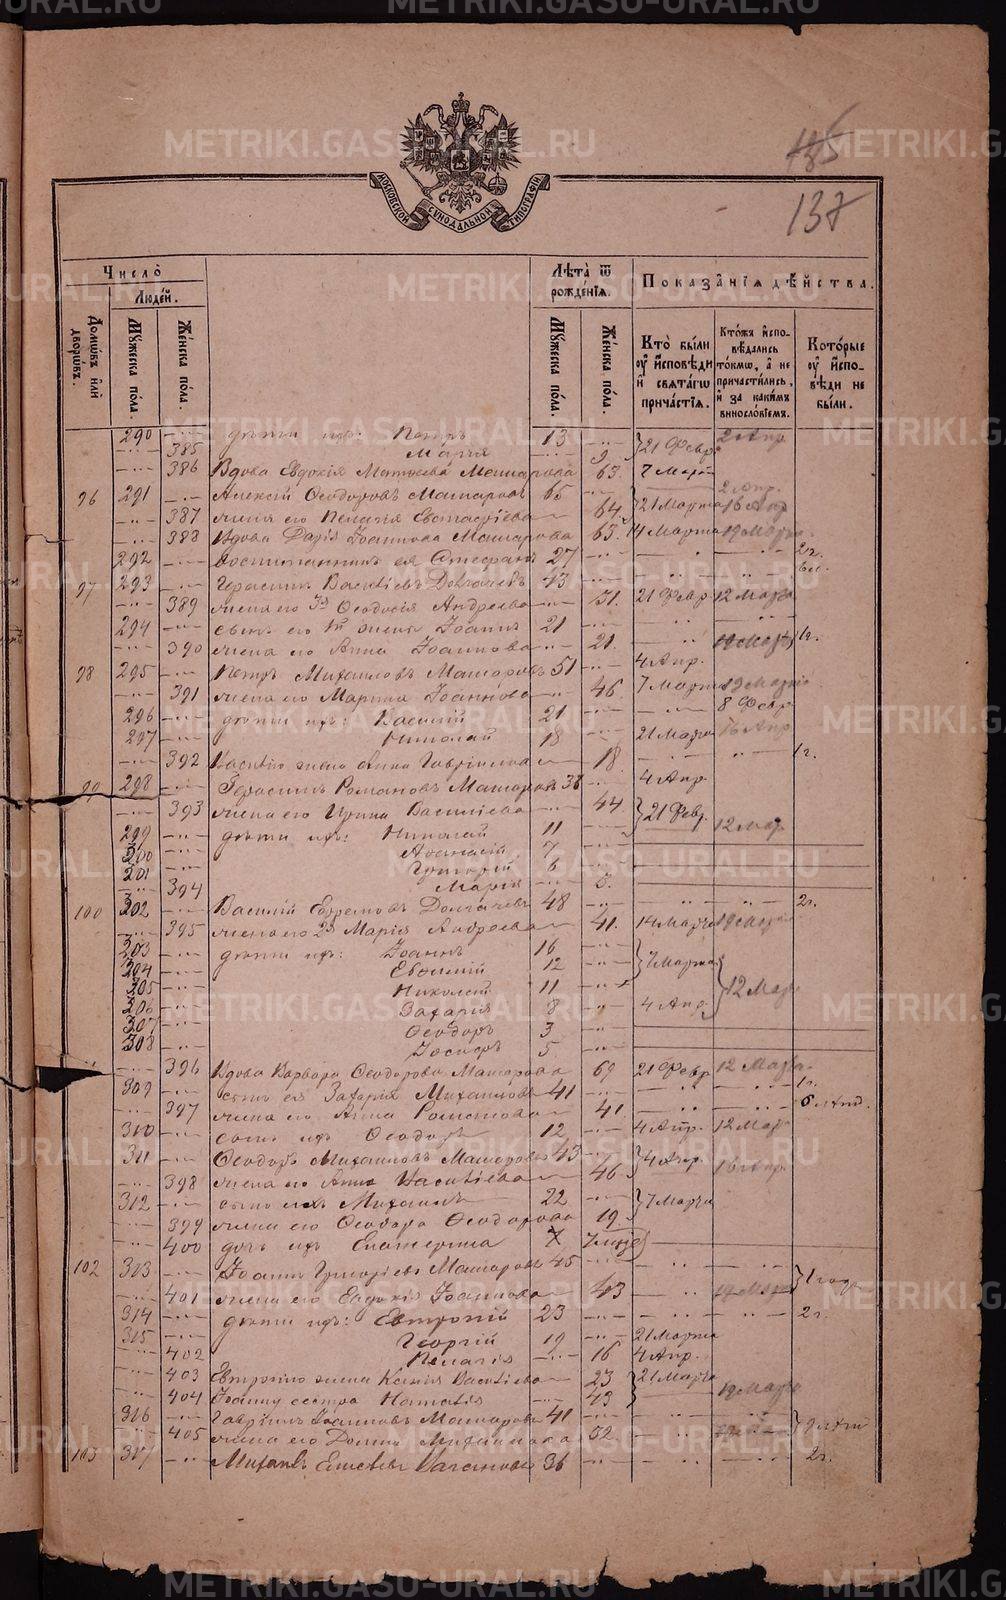 185
137
МОСКОВСКОЙ СѴНОДАЛЬНОЙ ТИПОГРАФІИ
Число̀
Людéй.
Домѡ́въ и҆лѝ дворѡ́въ.
Мꙋ́жеска по́ла.
Же́нска по́ла.
Лѣ́та ѿ рожде́нїѧ.
Мꙋ́жеска по́ла.
Же́нска по́ла.
Показа̑нїѧ дѣ́йства.
Кто̀ бы́ли ᲂу҆ и҆сповѣ́ди и҆ свѧта́гѡ прича́стїѧ.
Кто́жъ и҆сповѣ́дались то́кмѡ, а҆ не причасти́лись, и҆ за каки́мъ винослоовїемъ.
Кото́рые ᲂу҆ и҆сповѣ́ди не бы́ли.
290 дѣти ихъ: Петръ 13 21 Февр. 2 Апр.
385 Марья 9
386 Вдова Евдокія Матѳеева Машарова 63. 7 Март
96 291 Алексій Ѳеодоровъ Машаровъ 65 2 Апр.
387 жена его Пелагія Евстафіева 64. 21 Марта 16 Апр
388 Вдова Дарія Іоаннова Машарова 63. 14 Марта 19 Марта
292 воспитанникъ ея Стефанъ 27 2 г.
97 293 Герасимъ Васильевъ Долгачевъ 43
389 жена его Ѳеодосія Андреева 51. 21 Февр 12 Марта
294 сынъ его жены Іоаннъ 21
390 жена его Анна Іоаннова 21. 19 Март 1 г.
98 295 Петръ Михаиловъ Машаровъ 51 4 Апр.
391 жена его Марина Іоаннова 46. 7 Марта 19 Марта
296 дѣти ихъ: Василій 21 8 Февр
297 Николай 18 21 Марта 16 Апр
392 жена Анна Гавріилова 18 1 г.
99 298 Герасимъ Романовъ Машаровъ 38 4 Апр.
393 жена его Ирина Васильева 44 21 Февр.
299 дѣти ихъ: Николай 11 12 Мар
300 Аѳанасій 7
301 Григорій 6
394 Марія 3.
100 302 Василій Ефремовъ Долгачевъ 48 2 г.
395 жена его Марія Андреева 41. 14 Марта 19 Марта
303 дѣти ихъ: Іоаннъ 16
304 Евѳимій 12 7 Марта
305 Николай 11 12 Мар
306 Захарія 8 4 Апр
307 Ѳеодоръ 3
308 Іосифъ 5.
396 Вдова Варвара Ѳеодорова Машарова 69 21 Февр 12 Марта
309 сынъ ея Захарія Михаиловъ 41 1 г.
397 жена его Анна Романова 41. 6 лѣтъ.
310 сынъ ихъ Ѳеодоръ 12 4 Апр. 12 Март
311 Ѳеодоръ Михаиловъ Машаровъ 43 4 Апр.
398 жена его Анна Васильева 46. 16 Апр.
312 сынъ ихъ Михаилъ 22 7 Марта
399 жена его Ѳеодора Ѳеодорова 19
400 дочь ихъ Екатерина
102 313 Іоаннъ Григоріевъ Машаровъ 45
401 жена его Евдокія Іоаннова 43 19 Март 1 года
314 дѣти ихъ: Евтропій 23 2 г.
315 Георгій 19 21 Марта
402 Пелагія 16 4 Апр.
403 Евтропію жена Ксенія Васильева 23 21 Марта
404 Іоанну сестра Наталія 43 19 Марта
316 Гавріилъ Іоанновъ Машаровъ 41
405 жена его Домна 52
103 317 36 2 г.
METRIKI.GASO-URAL.RU